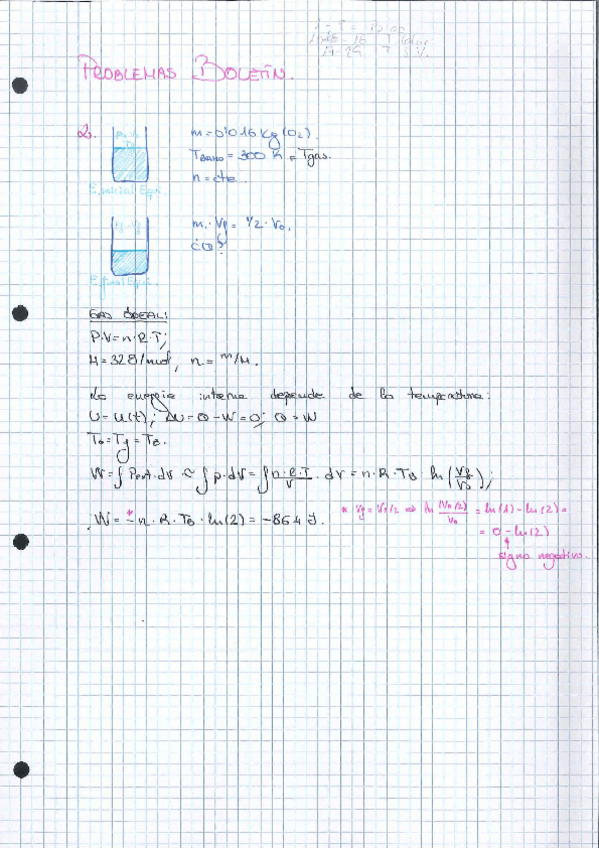 PROBLEMAS BOLETÍN.
2.
m=0'016 Kg (O₂).
T_BAÑO = 300 K = Tgas.
n=cte.
E.inicial Equi.
Vf = 1/2 · V₀.
¿Q?
E.final Equi.
GAS IDEAL:
P·V=n·R·T;
M=32 g/mol, n = m/M.
La energía interna depende de la temperatura:
U=U(t); ΔU=Q-W=0; Q=W
T₀=Tf=TB.
W=∫Pext·dV≈∫p·dV=∫n·R·T/V · dV=n·R·TB ln(Vf/V₀);
W=-n·R·TB·ln(2)=-864 J.
* Vf=V₀/2 ⇒ ln (V₀/2)/V₀ = ln(1)-ln(2)=
= 0-ln(2)
signo negativo.